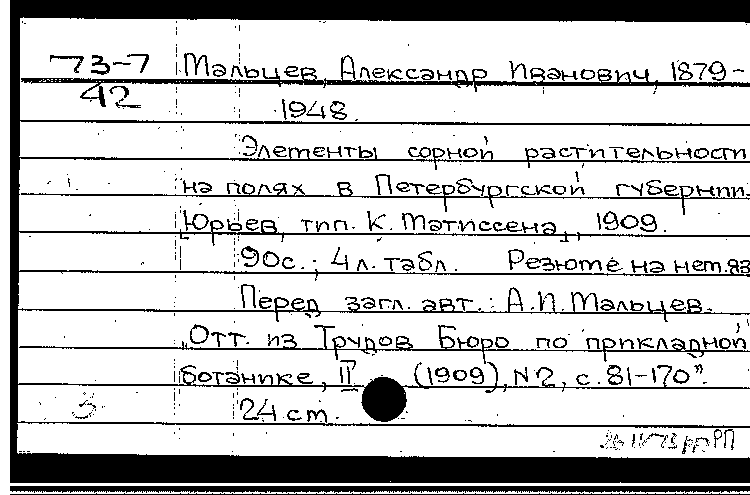 73-7 Мальцев, Александр Иванович, 1879-
42 1948.
Элементы сорной растительности
на полях в Петербургской губернии.
[Юрьев, тип. К. Матиссена], 1909.
90с.; 4 л. табл. Резюме на нем. яз
Перед загл. авт.: А.И. Мальцев.
"Отт. из Трудов Бюро по прикладной
ботанике, II (1909), N2, с. 81-170".
3 24 см.
РП